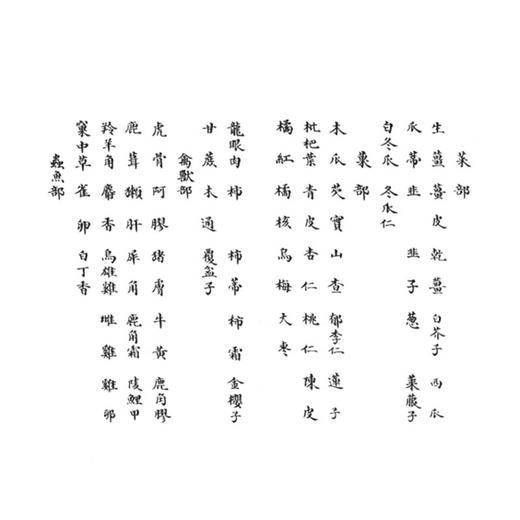 菜部
生薑 薑皮 乾薑 白芥子 西瓜
瓜蒂 韭 韭子 葱 萊菔子
白冬瓜 冬瓜仁
菓部
木瓜 芡實 山查 郁李仁 蓮子
枇杷葉 青皮 杏仁 桃仁 陳皮
橘紅 橘核 烏梅 大枣
龍眼肉 柿 柿蒂 柿霜 金櫻子
甘蔗 木通 覆盆子
禽獸部
虎骨 阿膠 豬膚 牛黃 鹿角膠
鹿茸 獺肝 犀角 鹿角霜 陵鯉甲
羚羊角 麝香 烏雄雞 雌雞 雞卵
窠中草 雀卵 白丁香
蟲魚部